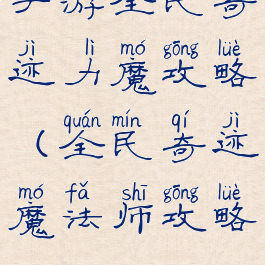 游全民奇
jì lì mó gōng lüè
迹力魔攻略
quán mín qí jì
(全民奇迹
mó fǎ shī gōng lüè
魔法师攻略